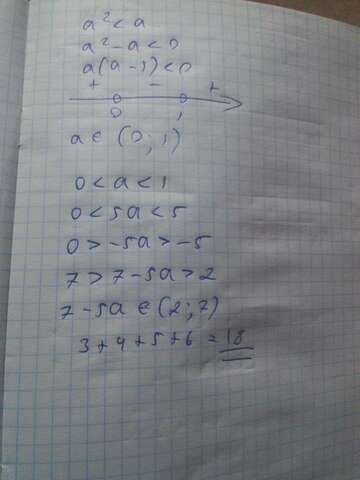 a² < a
a² - a < 0
a(a - 1) < 0
+ - +
0 1
a ∈ (0; 1)
0 < a < 1
0 < 5a < 5
0 > -5a > -5
7 > 7 - 5a > 2
7 - 5a ∈ (2; 7)
3 + 4 + 5 + 6 = 18